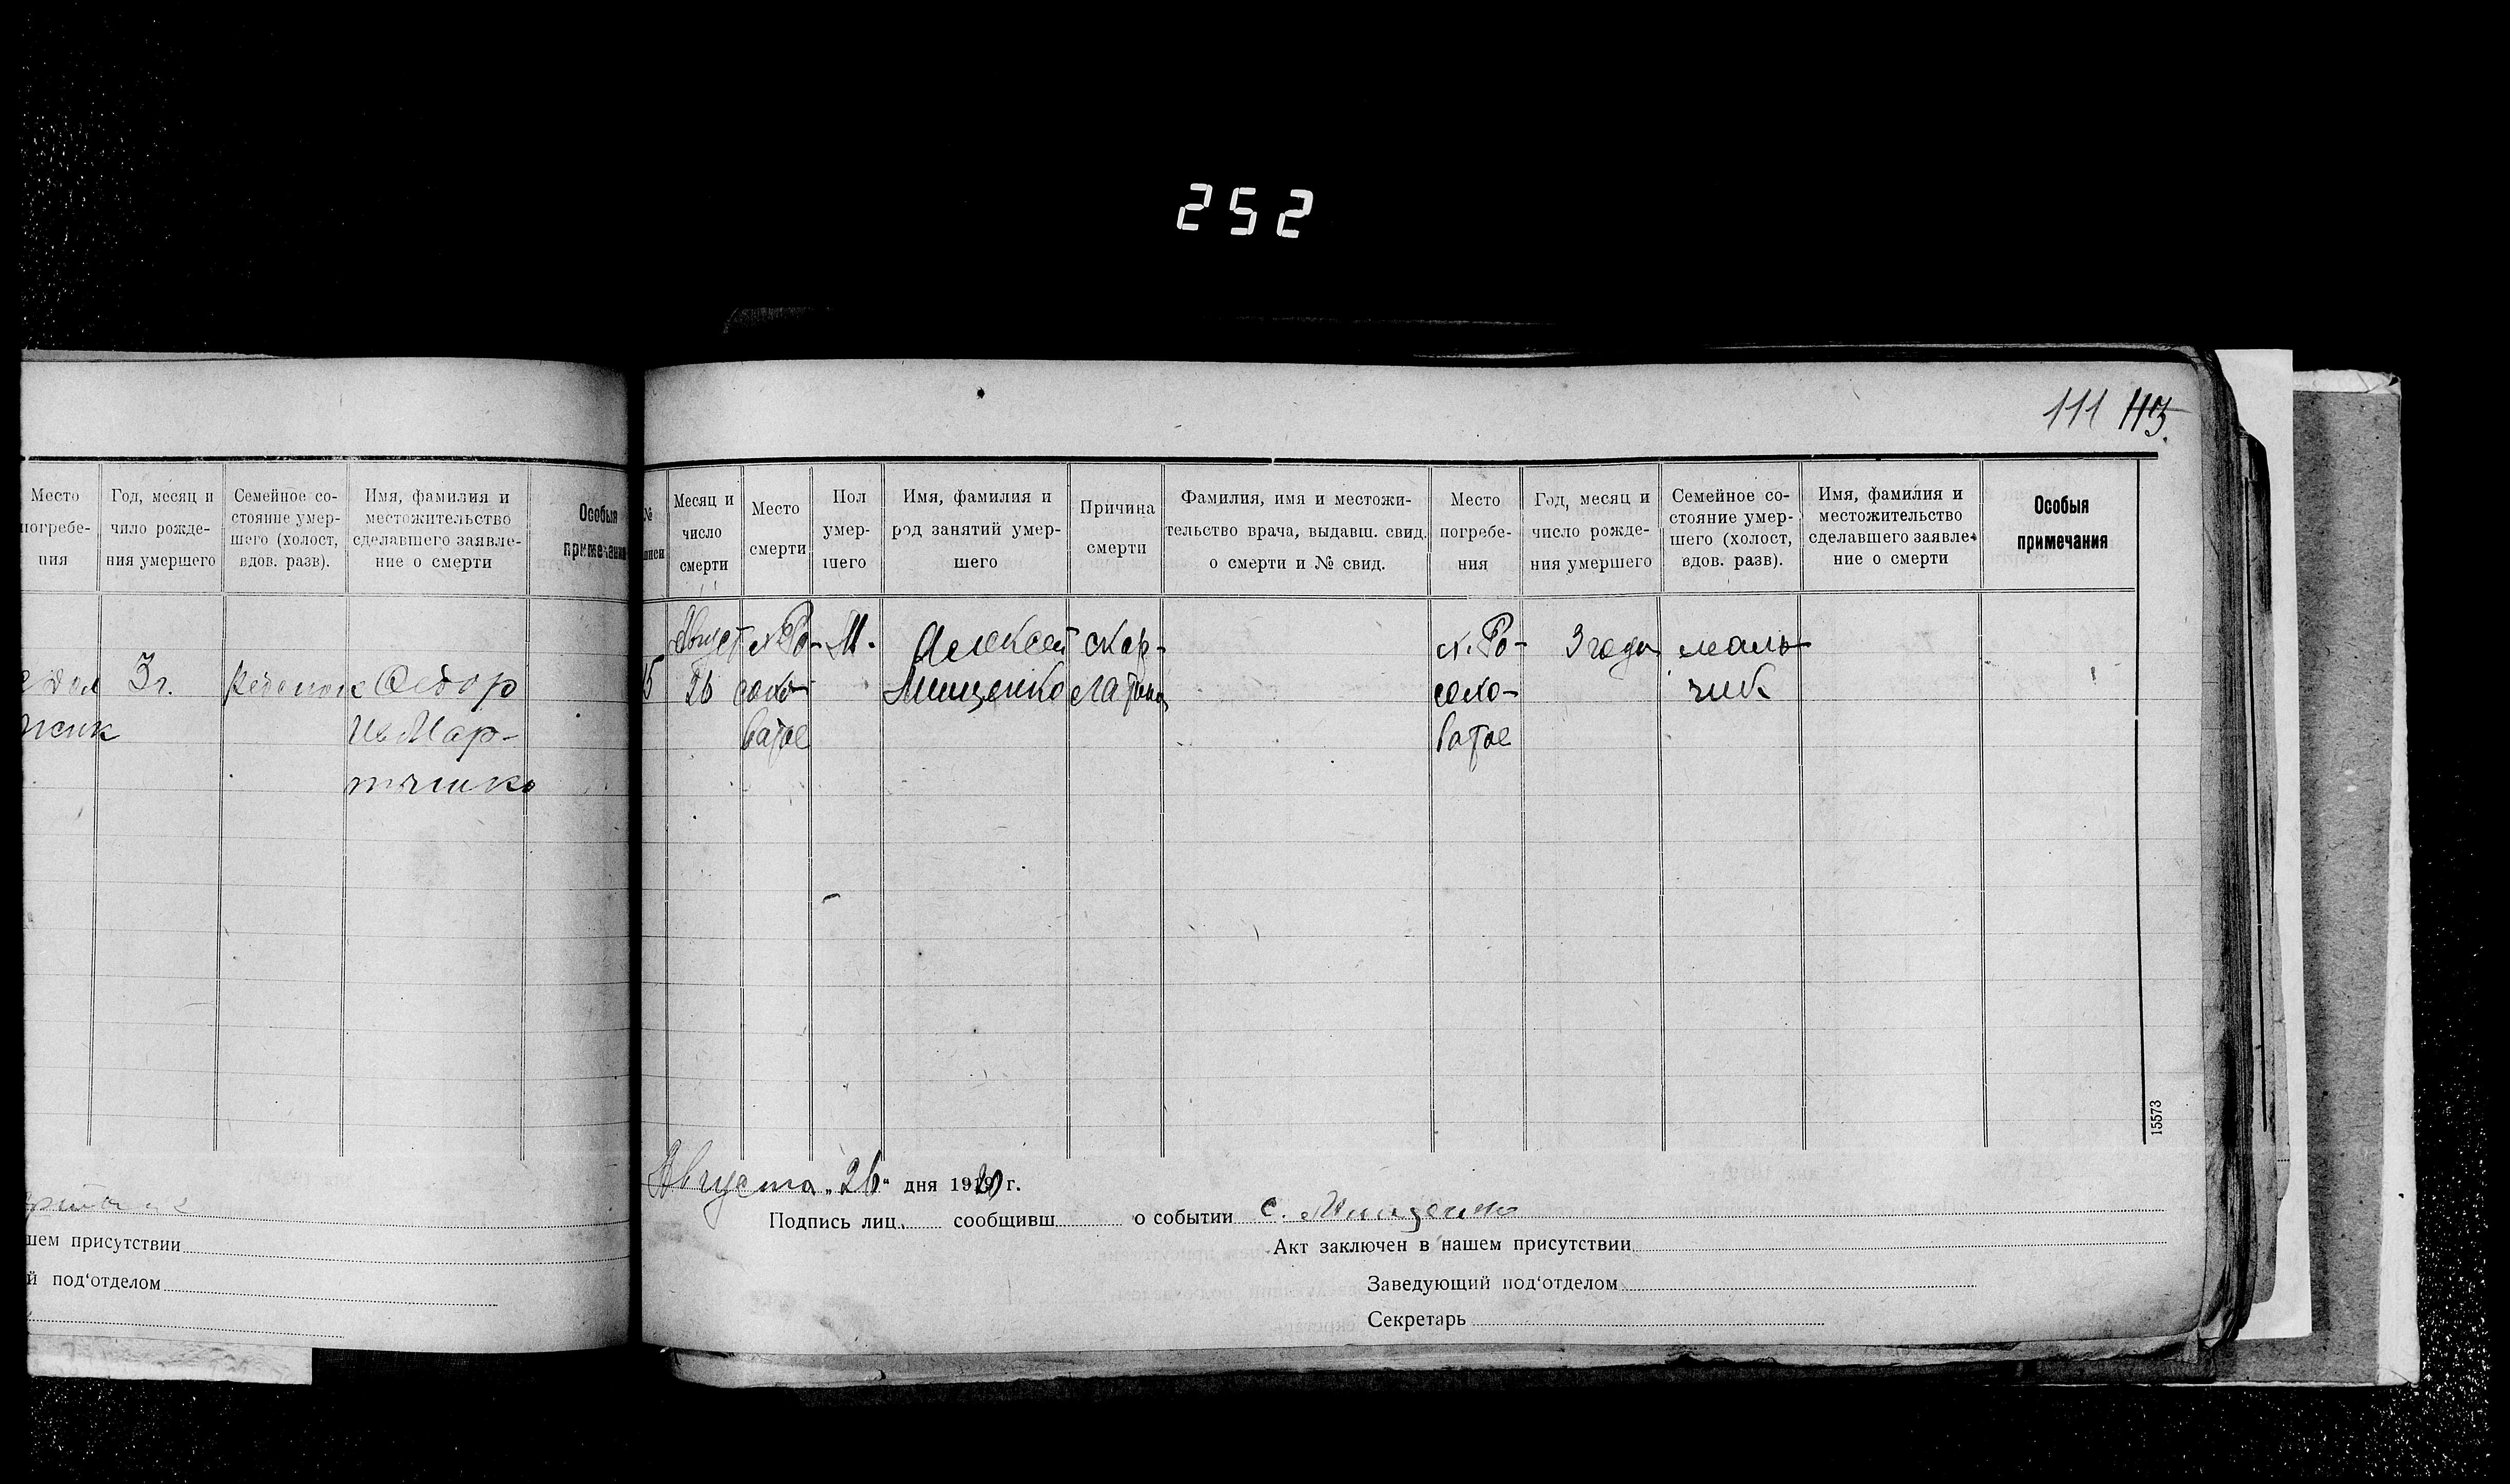 252
Место
погребе-
ния
Год, месяц и
чило рожде-
ния умершего
Семейное со-
стояние умер-
шего (холост,
вдов. разв).
Имя, фамилия и
местожительство
сделавшего заявле-
ние о смерти
Особыя
примечания
3 г.
Федор
Ив Мар-
шем присутствии
й под'отделом
111 113
№
Месяц и
число
смерти
Место
смерти
Пол
умер-
шего
Имя, фамилия и
род занятий умер-
шего
Причина
смерти
Фамилия, имя и местожи-
тельство врача, выдавш. свид.
о смерти и № свид.
Место
погребе-
ния
Год, месяц и
число рожде-
ния умершего
Семейное со-
стояние умер-
шего (холост,
вдов. разв).
Имя, фамилия и
местожительство
сделавшего заявле-
ние о смерти
Особыя
примечания
Август
26
М.
Алексей
Мищенко
скар-
латина
3 года
маль-
чик
15573
Августа „26" дня 1920 г.
Подпись лиц. сообщивш о событии С. Мищенко
Акт заключен в нашем присутствии
Заведующий под'отделом
Секретарь